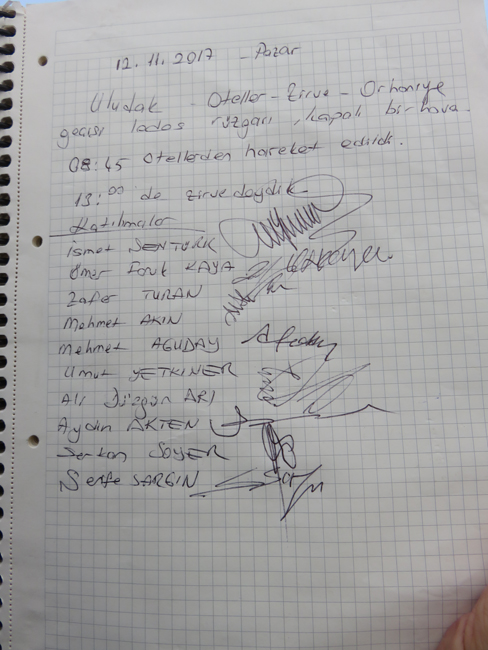 12.11.2017 - Pazar
Uludak - Oteller - Zirve - Orhaniye
geçişi lodos rüzgarı, kapalı bir hava.
08:45 otellerden hareket edildi.
13:00 de zirvedeydik
Katılımcılar
İsmet ŞENTÜRK
Ömer Faruk KAYA
Zafer TURAN
Mehmet AKIN
Mehmet AGUDAY
Umut YETKİNER
Ali Düzgün ARI
Aydın AKTEN
Sertan SOYER
Serfe SARGIN